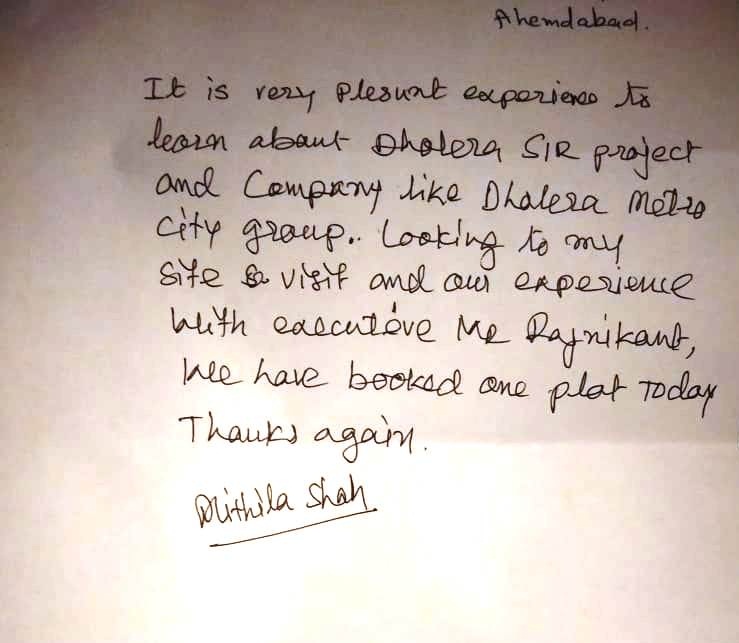 Ahemdabad.
It is very plesunt experience to
learn about Dholera SIR project
and Company like Dholera Metro
City group.. Looking to my
site visit and our experience
with executive Mr Rajnikant,
we have booked one plot Today
Thanks again.
Mithila Shah